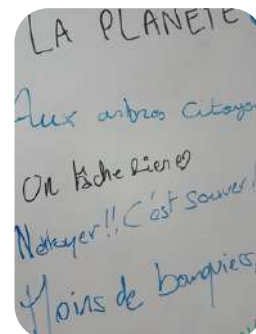 LA PLANETE
Aux arbres citoyen
On lâche rien
Nettoyer!! C'est sauver!
Moins de banquiers,